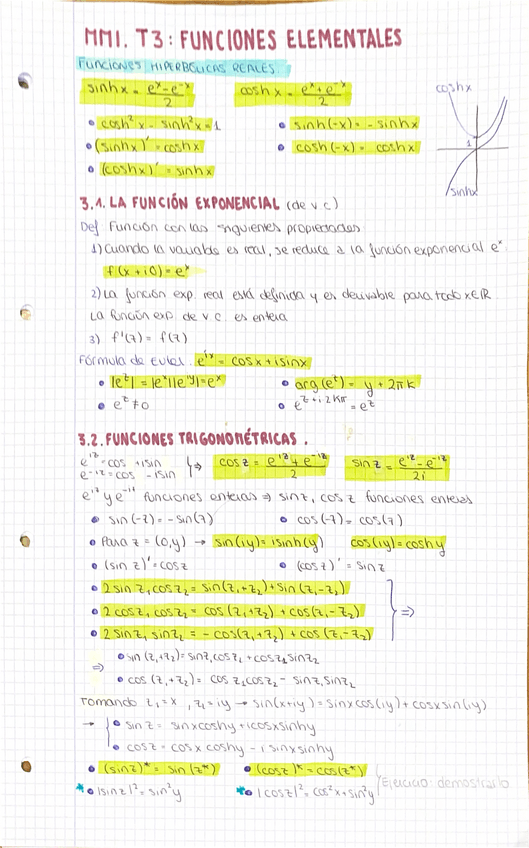 MM1. T3: FUNCIONES ELEMENTALES
FUNCIONES HIPERBÓLICAS REALES
sinhx = (e^x - e^-x)/2    coshx = (e^x + e^-x)/2    coshx
• cosh²x - sinh²x = 1    • sinh(-x) = - sinhx
1
• (sinhx)' = coshx    • cosh(-x) = coshx
• (coshx)' = sinhx    sinhx
3.1. LA FUNCIÓN EXPONENCIAL (de v c)
Def Función con las siguientes propiedades
1) Cuando la variable es real, se reduce a la función exponencial e^x
f(x+i0) = e^x
2) La función exp. real está definida y es derivable para todo x∈ℝ
La función exp de v c. es entera
3) f'(z) = f(z)
Fórmula de Euler. e^ix = cosx + isinx
• |e^z| = |e^x||e^iy| = e^x    • arg(e^z) = y + 2πk
• e^z ≠ 0    • e^(z+i2kπ) = e^z
3.2. FUNCIONES TRIGONOMÉTRICAS.
e^iz = cos + isin
e^-iz = cos - isin    ⇒    cosz = (e^iz + e^-iz)/2    sinz = (e^iz - e^-iz)/2i
e^iz y e^-iz funciones enteras ⇒ sinz, cosz funciones enteras
• sin(-z) = - sin(z)    • cos(-z) = cos(z)
• Para z = (0,y) → sin(iy) = isinh(y)    cos(iy) = coshy
• (sin z)' = cosz    • (cosz)' = sinz
• 2 sinz₁cosz₂ = sin(z₁+z₂) + sin(z₁-z₂)
• 2 cosz₁cosz₂ = cos(z₁+z₂) + cos(z₁-z₂)    ⇒
• 2 sinz₁ sinz₂ = - cos(z₁+z₂) + cos(z₁-z₂)
⇒ • sin(z₁+z₂) = sinz₁cosz₂ + cosz₁sinz₂
• cos(z₁+z₂) = cosz₁cosz₂ - sinz₁sinz₂
Tomando z₁=x, z₂=iy → sin(x+iy) = sinxcos(iy) + cosxsin(iy)
→ • sinz = sinxcoshy + icosxsinhy
• cosz = cosx coshy - i sinxsinhy
• (sinz)* = sin(z*)    • (cosz)* = cos(z*)
Ejercicio: demostrarlo
• |sinz|² = sin²y    • |cosz|² = cos²x + sin²y